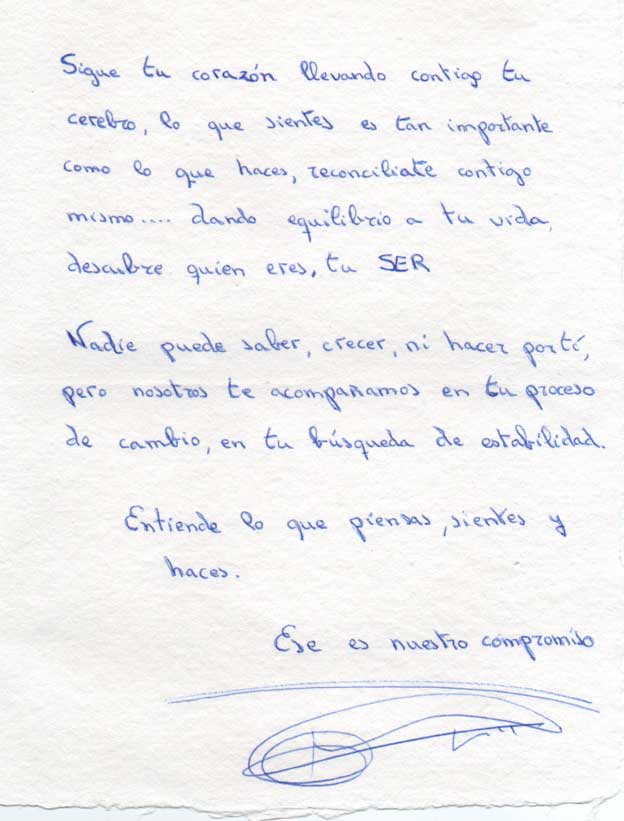 Sigue tu corazón llevando contigo tu
cerebro, lo que sientes es tan importante
como lo que haces, reconciliate contigo
mismo.... dando equilibrio a tu vida,
descubre quien eres, tu SER
Nadie puede saber, crecer, ni hacer por tí,
pero nosotros te acompañamos en tu proceso
de cambio, en tu búsqueda de estabilidad.
Entiende lo que piensas, sientes y
haces.
Ese es nuestro compromiso